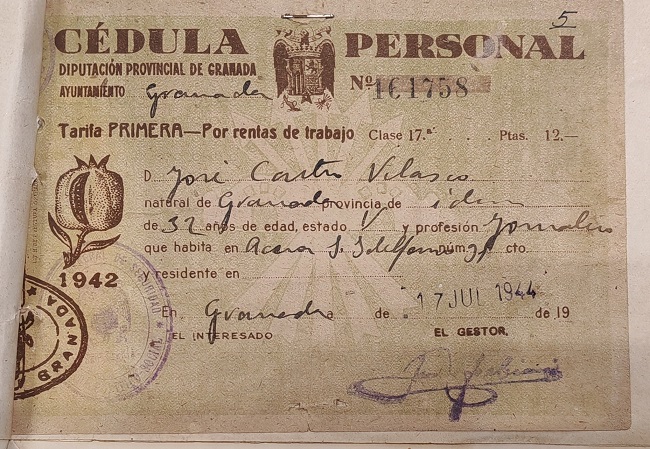 5
CÉDULA PERSONAL
DIPUTACIÓN PROVINCIAL DE GRANADA
AYUNTAMIENTO Granada
Nº 161758
Tarifa PRIMERA—Por rentas de trabajo Clase 17.ª Ptas. 12.—
D. José Castro Velasco
natural de Granada provincia de idem
de 32 años de edad, estado V y profesión Jornalero
que habita en Acera S. Ildefonso núm. cto
y residente en
1942
En Granada a de 17 JUL 1944 de 19
EL INTERESADO EL GESTOR.
GRANADA